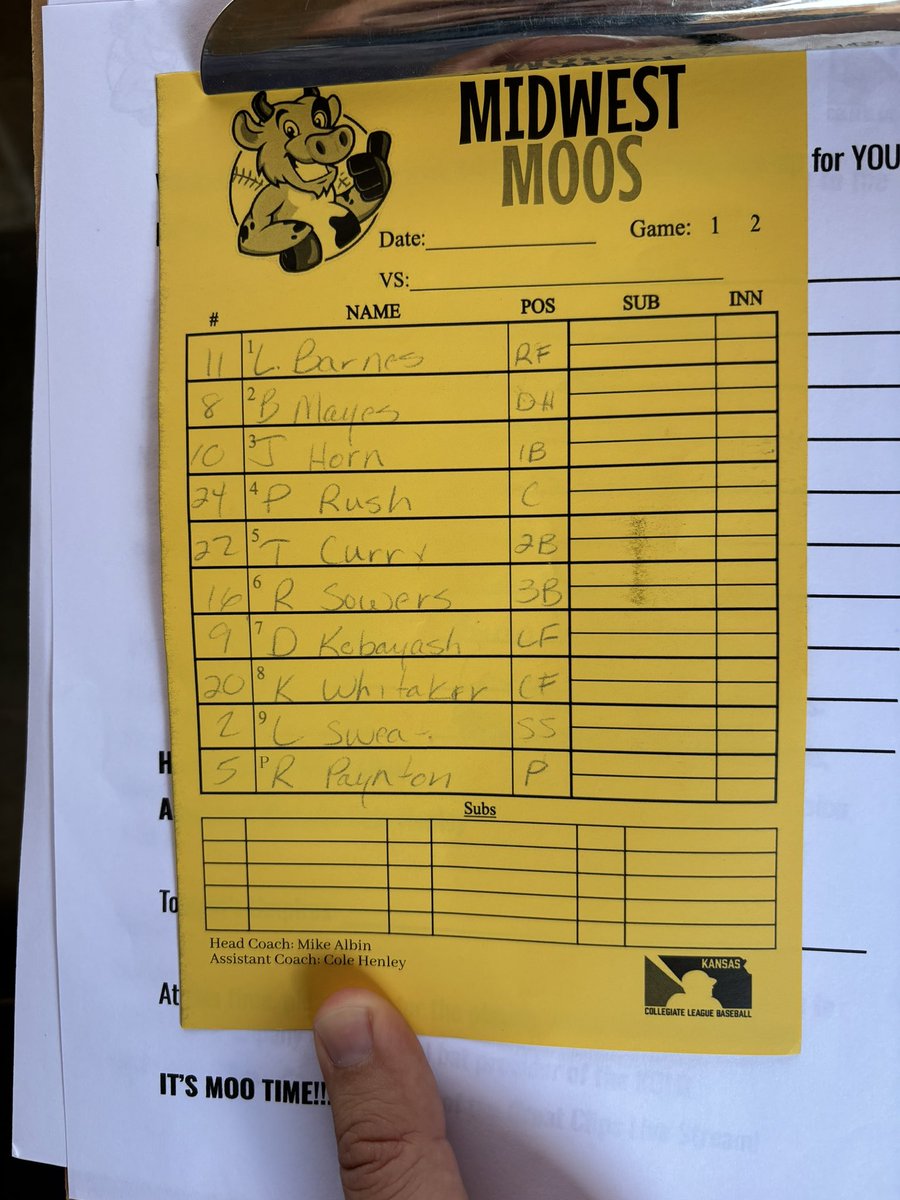 MIDWEST
MOOS
for YOU
Date:
Game: 1 2
VS:
# NAME POS SUB INN
11 1 L. Barnes RF
8 2 B Mayes DH
10 3 J Horn 1B
24 4 P Rush C
22 5 T Curry 2B
16 6 R Sowers 3B
9 7 D Kobayash LF
20 8 K Whitaker CF
2 9 L SS
5 P R Paynton P
Subs
H
A
To
Head Coach: Mike Albin
Assistant Coach: Cole Henley
At
KANSAS
COLLEGIATE LEAGUE BASEBALL
IT'S MOO TIME!!!